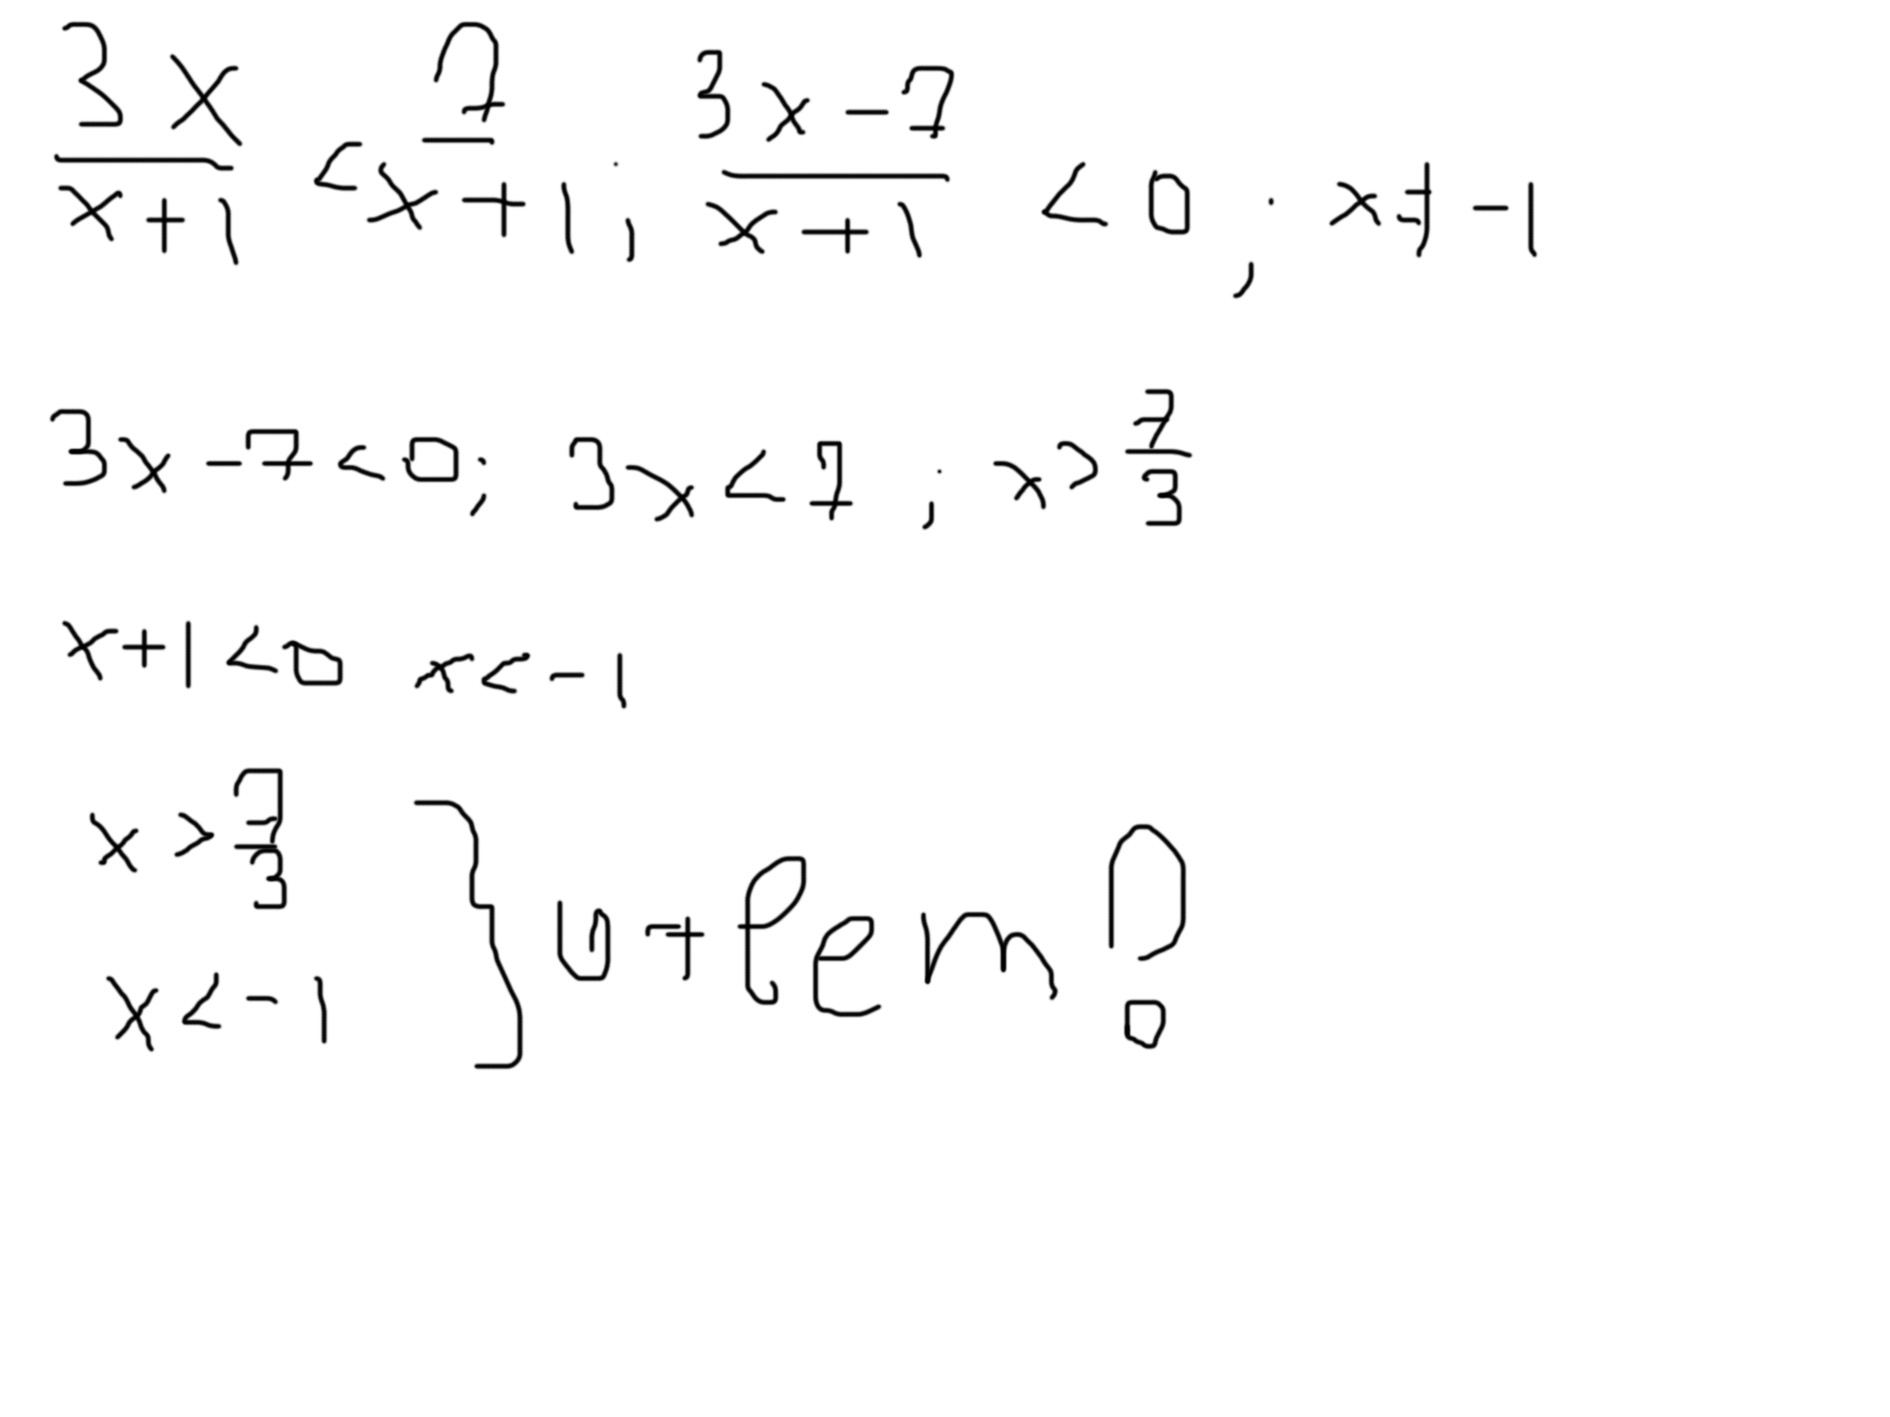 3x/x+1 < 7/x+1 ; 3x-7/x+1 < 0 ; x ≠ -1
3x - 7 < 0 ; 3x < 7 ; x > 7/3
x+1 < 0 x < -1
x > 7/3
x < -1 } ответ: